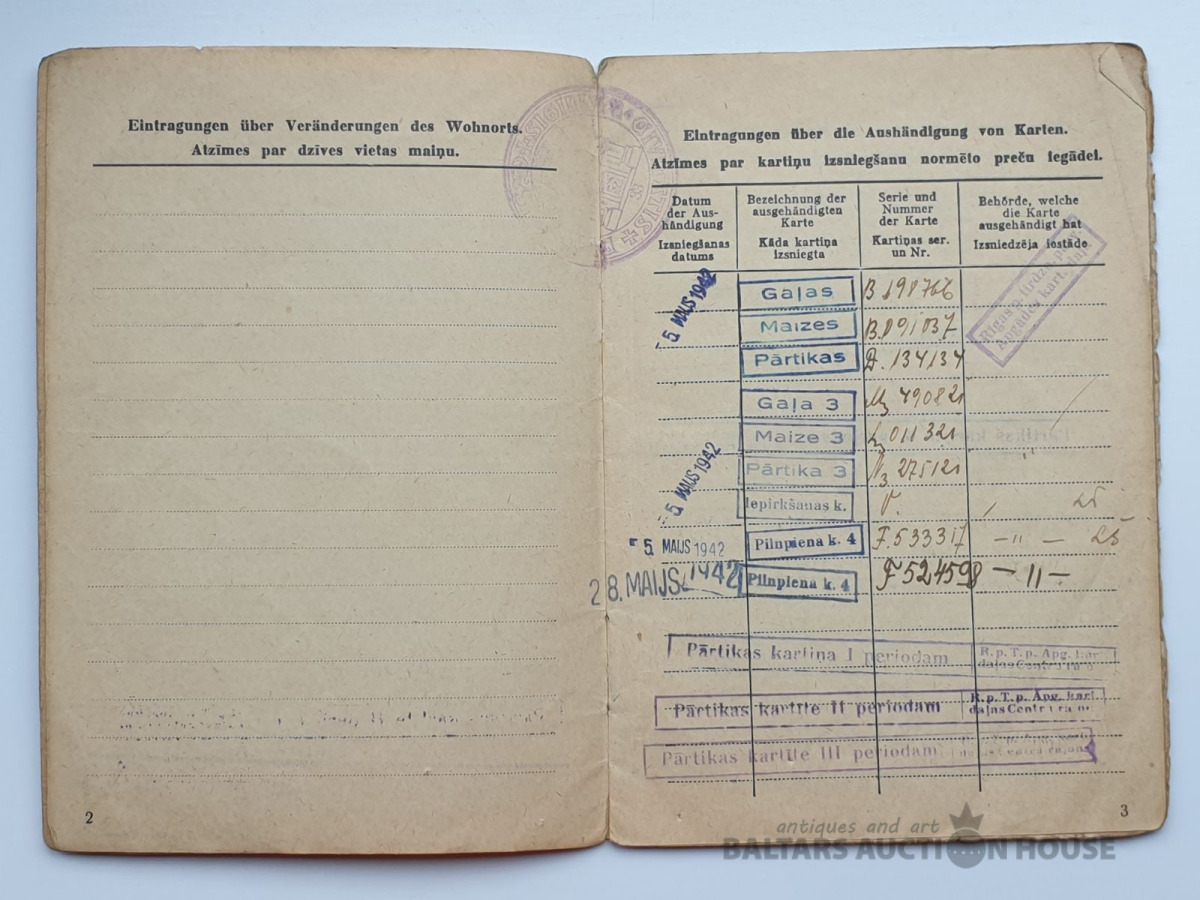 Eintragungen über Veränderungen des Wohnorts.
Atzīmes par dzīves vietas maiņu.
2
Eintragungen über die Aushändigung von Karten.
Atzīmes par kartiņu izsniegšanu normēto preču iegādei.
Datum
der Aus-
händigung
Izsniegšanas
datums
Bezeichnung der
ausgehändigten
Karte
Kāda kartiņa
izsniegta
Serie und
Nummer
der Karte
Kartiņas ser.
un Nr.
Behörde, welche
die Karte
ausgehändigt hat
Izsniedzēja iestāde
5. MAIJS 1942
Gaļas B 198766
Maizes B.091037
Pārtikas 134134
Gaļa 3 490821
Maize 3 011321
5. MAIJS 1942
Pārtika 3 275121
Iepirkšanas k.
5. MAIJS 1942 Pilnpiena k. 4 F.533317 — " —
28. MAIJS 1942 Pilnpiena k. 4 F 524598 — 11 —
Pārtikas kartiņa I periodam R.p.T.p. Apg. kart. daļas Centra raj.
Pārtikas kartīte II periodam R.p.T.p. Apg. kart. daļas Centra raj.
Pārtikas kartīte III periodam
3
antiques and art
BALTARS AUCTION HOUSE